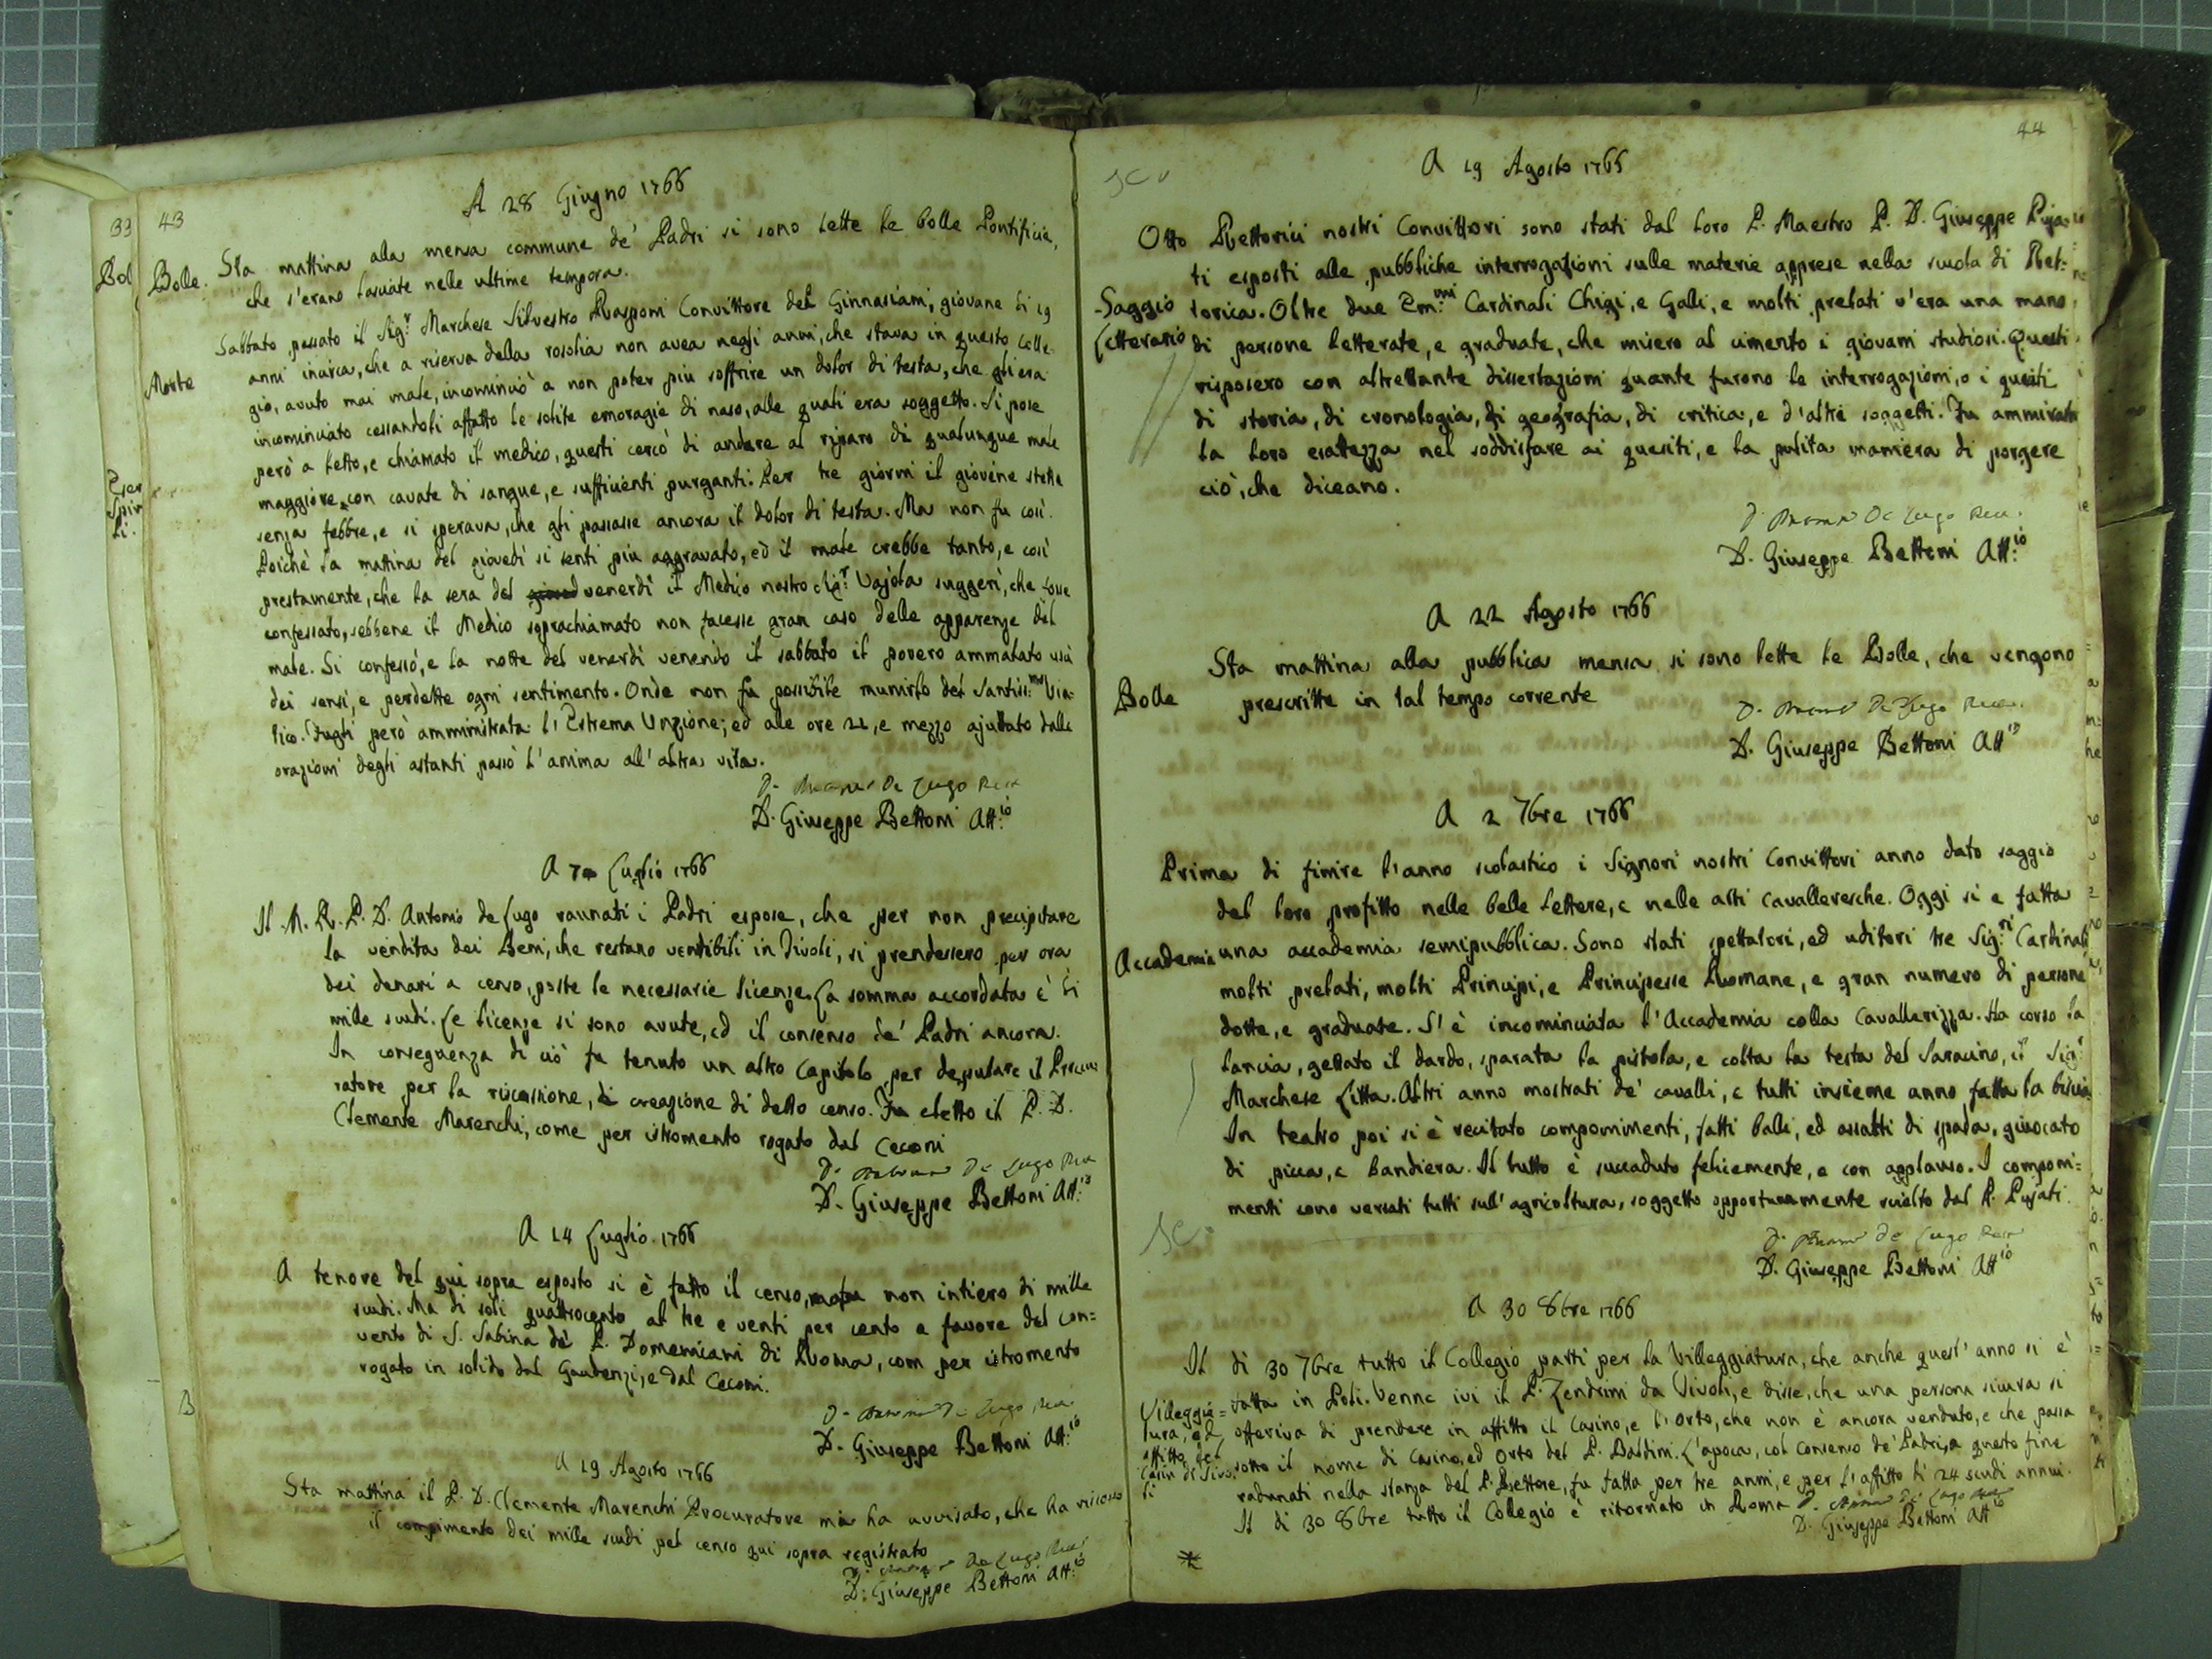 43
A 28 Giugno 1766
Bolle. Sta mattina alla mensa commune de' Padri si sono lette le bolle Pontificie,
che s'erano lasciate nelle ultime tempora.
Sabbato passato il Sig.r Marchese Silvestro Rasponi Convittore del Ginnasiani, giovane di 19
anni incirca, che a riserva della rosolia non avea negli anni, che stava in questo Colle-
Morte
gio, avuto mai male, incominciò a non poter più soffrire un dolor di testa, che gli era
incominciato cessandoli affatto le solite emoragie di naso, alle quali era soggetto. Si pose
però a letto, e chiamato il medico, questi cercò di andare al riparo di qualunque male
maggiore con cavate di sangue, e sufficienti purganti. Per tre giorni il giovine stette
senza febbre, e si sperava, che gli passasse ancora il dolor di testa. Ma non fu così.
Poichè la mattina del giovedì si sentì più aggravato, ed il male crebbe tanto, e così
prestamente, che la sera del venerdì il Medico nostro Sig.r Vajola suggerì, che fosse
confessato, sebbene il Medico soprachiamato non facesse gran caso delle apparenze del
male. Si confessò, e la notte del venerdì venendo il sabbato il povero ammalato uscì
dei sensi, e perdette ogni sentimento. Onde non fu possibile munirlo del Santiss:mo Via-
tico. Fugli però amministrata l'Estrema Unzione; ed alle ore 22, e mezzo ajuttato dalle
orazioni degli astanti passò l'anima all'altra vita.
D. De Lugo
D. Giuseppe Bettoni Att:io
A 7 Luglio 1766
Il M. R. P. D. Antonio de Lugo raunati i Padri espose, che per non precipitare
la vendita dei Beni, che restano vendibili in Tivoli, si prendessero per ora
dei denari a censo, poste le necessarie licenze. La somma accordata è di
mille scudi. Le licenze si sono avute, ed il consenso de' Padri ancora.
In conseguenza di ciò fu tenuto un altro Capitolo per deputare il Procu
ratore per la riscossione, e creazione di detto censo. Fu eletto il P. D.
Clemente Marenchi, come per istromento rogato dal Ceconi
D. De Lugo
D. Giuseppe Bettoni Att:io
A 14 Luglio 1766
A tenore del qui sopra esposto si è fatto il censo, non intiero di mille
scudi. Ma di soli quattrocento al tre e venti per cento a favore del con=
vento di S. Sabina de' P. Domeniani di Roma, com per istromento
rogato in solido dal Gaudenzi, e dal Ceconi.
D. De Lugo
D. Giuseppe Bettoni Att:io
A 19 Agosto 1766
Sta mattina il P. D. Clemente Marenchi Procuratore mi ha avvisato, che ha riscosso
il compimento dei mille scudi pel censo qui sopra registrato
D. De Lugo
D: Giuseppe Bettoni Att:io
44
A 19 Agosto 1766
Otto Rettorici nostri Convittori sono stati dal loro P. Maestro P. D. Giuseppe Puja=
ti esposti alle pubbliche interrogazioni sulle materie apprese nella scuola di Ret=
Saggio
Letterario
torica. Oltre due Em:mi Cardinali Chigi, e Galli, e molti prelati v'era una mano
di persone letterate, e graduate, che misero al cimento i giovani studiosi. Questi
risposero con altrettante dissertazioni quante furono le interrogazioni, o i quesiti
di storia, di cronologia, di geografia, di critica, e d'altri soggetti. Fu ammirata
la loro esattezza nel soddisfare ai quesiti, e la pulita maniera di porgere
ciò, che diceano.
D. De Lugo
D. Giuseppe Bettoni Att:io
A 22 Agosto 1766
Sta mattina alla pubblica mensa si sono lette le Bolle, che vengono
Bolle
prescritte in tal tempo corrente
D. De Lugo
D. Giuseppe Bettoni Att:io
A 2 7bre 1766
Prima di finire l'anno scolastico i Signori nostri Convittori anno dato saggio
del loro profitto nelle belle lettere, e nelle arti cavalleresche. Oggi si è fatta
Accademia una accademia semipubblica. Sono stati spettatori, ed uditori tre Sig.ri Cardinali
molti prelati, molti Principi, e Principesse Romane, e gran numero di persone
dotte, e graduate. S'è incominciata l'Accademia colla Cavallerizza. Ha corso la
lancia, gettato il dardo, sparata la pistola, e colta la testa del Saracino, il Sig.r
Marchese Litta. Altri anno mostrati de' cavalli, e tutti insieme anno fatta la biscia
In teatro poi si è recitato componimenti, fatti balli, ed assalti di spada, giuocato
di picca, e bandiera. Il tutto è succaduto felicemente, e con applauso. I componi=
menti sono versati tutti sull'agricoltura, soggetto opportunamente scielto dal P. Pujati.
D. De Lugo
D. Giuseppe Bettoni Att:io
A 30 8bre 1766
Il di 30 7bre tutto il Collegio partì per la Villeggiatura, che anche quest'anno si è
Villeggia=
tura, ed
affitto del
Casin di Tivo
li
fatta in Poli. Venne ivi il P. Zendrini da Tivoli, e disse, che una persona sicura si
offeriva di prendere in affitto il Casino, e l'orto, che non è ancora venduto, e che passa
sotto il nome di Casino, ed Orto del P. Baldini. L'apoca, col consenso de' Padri, a questo fine
radunati nella stanza del P. Rettore, fu fatta per tre anni, e per l'affitto di 24 scudi annui.
Il di 30 8bre tutto il Collegio è ritornato in Roma D. De Lugo
D. Giuseppe Bettoni Att:io